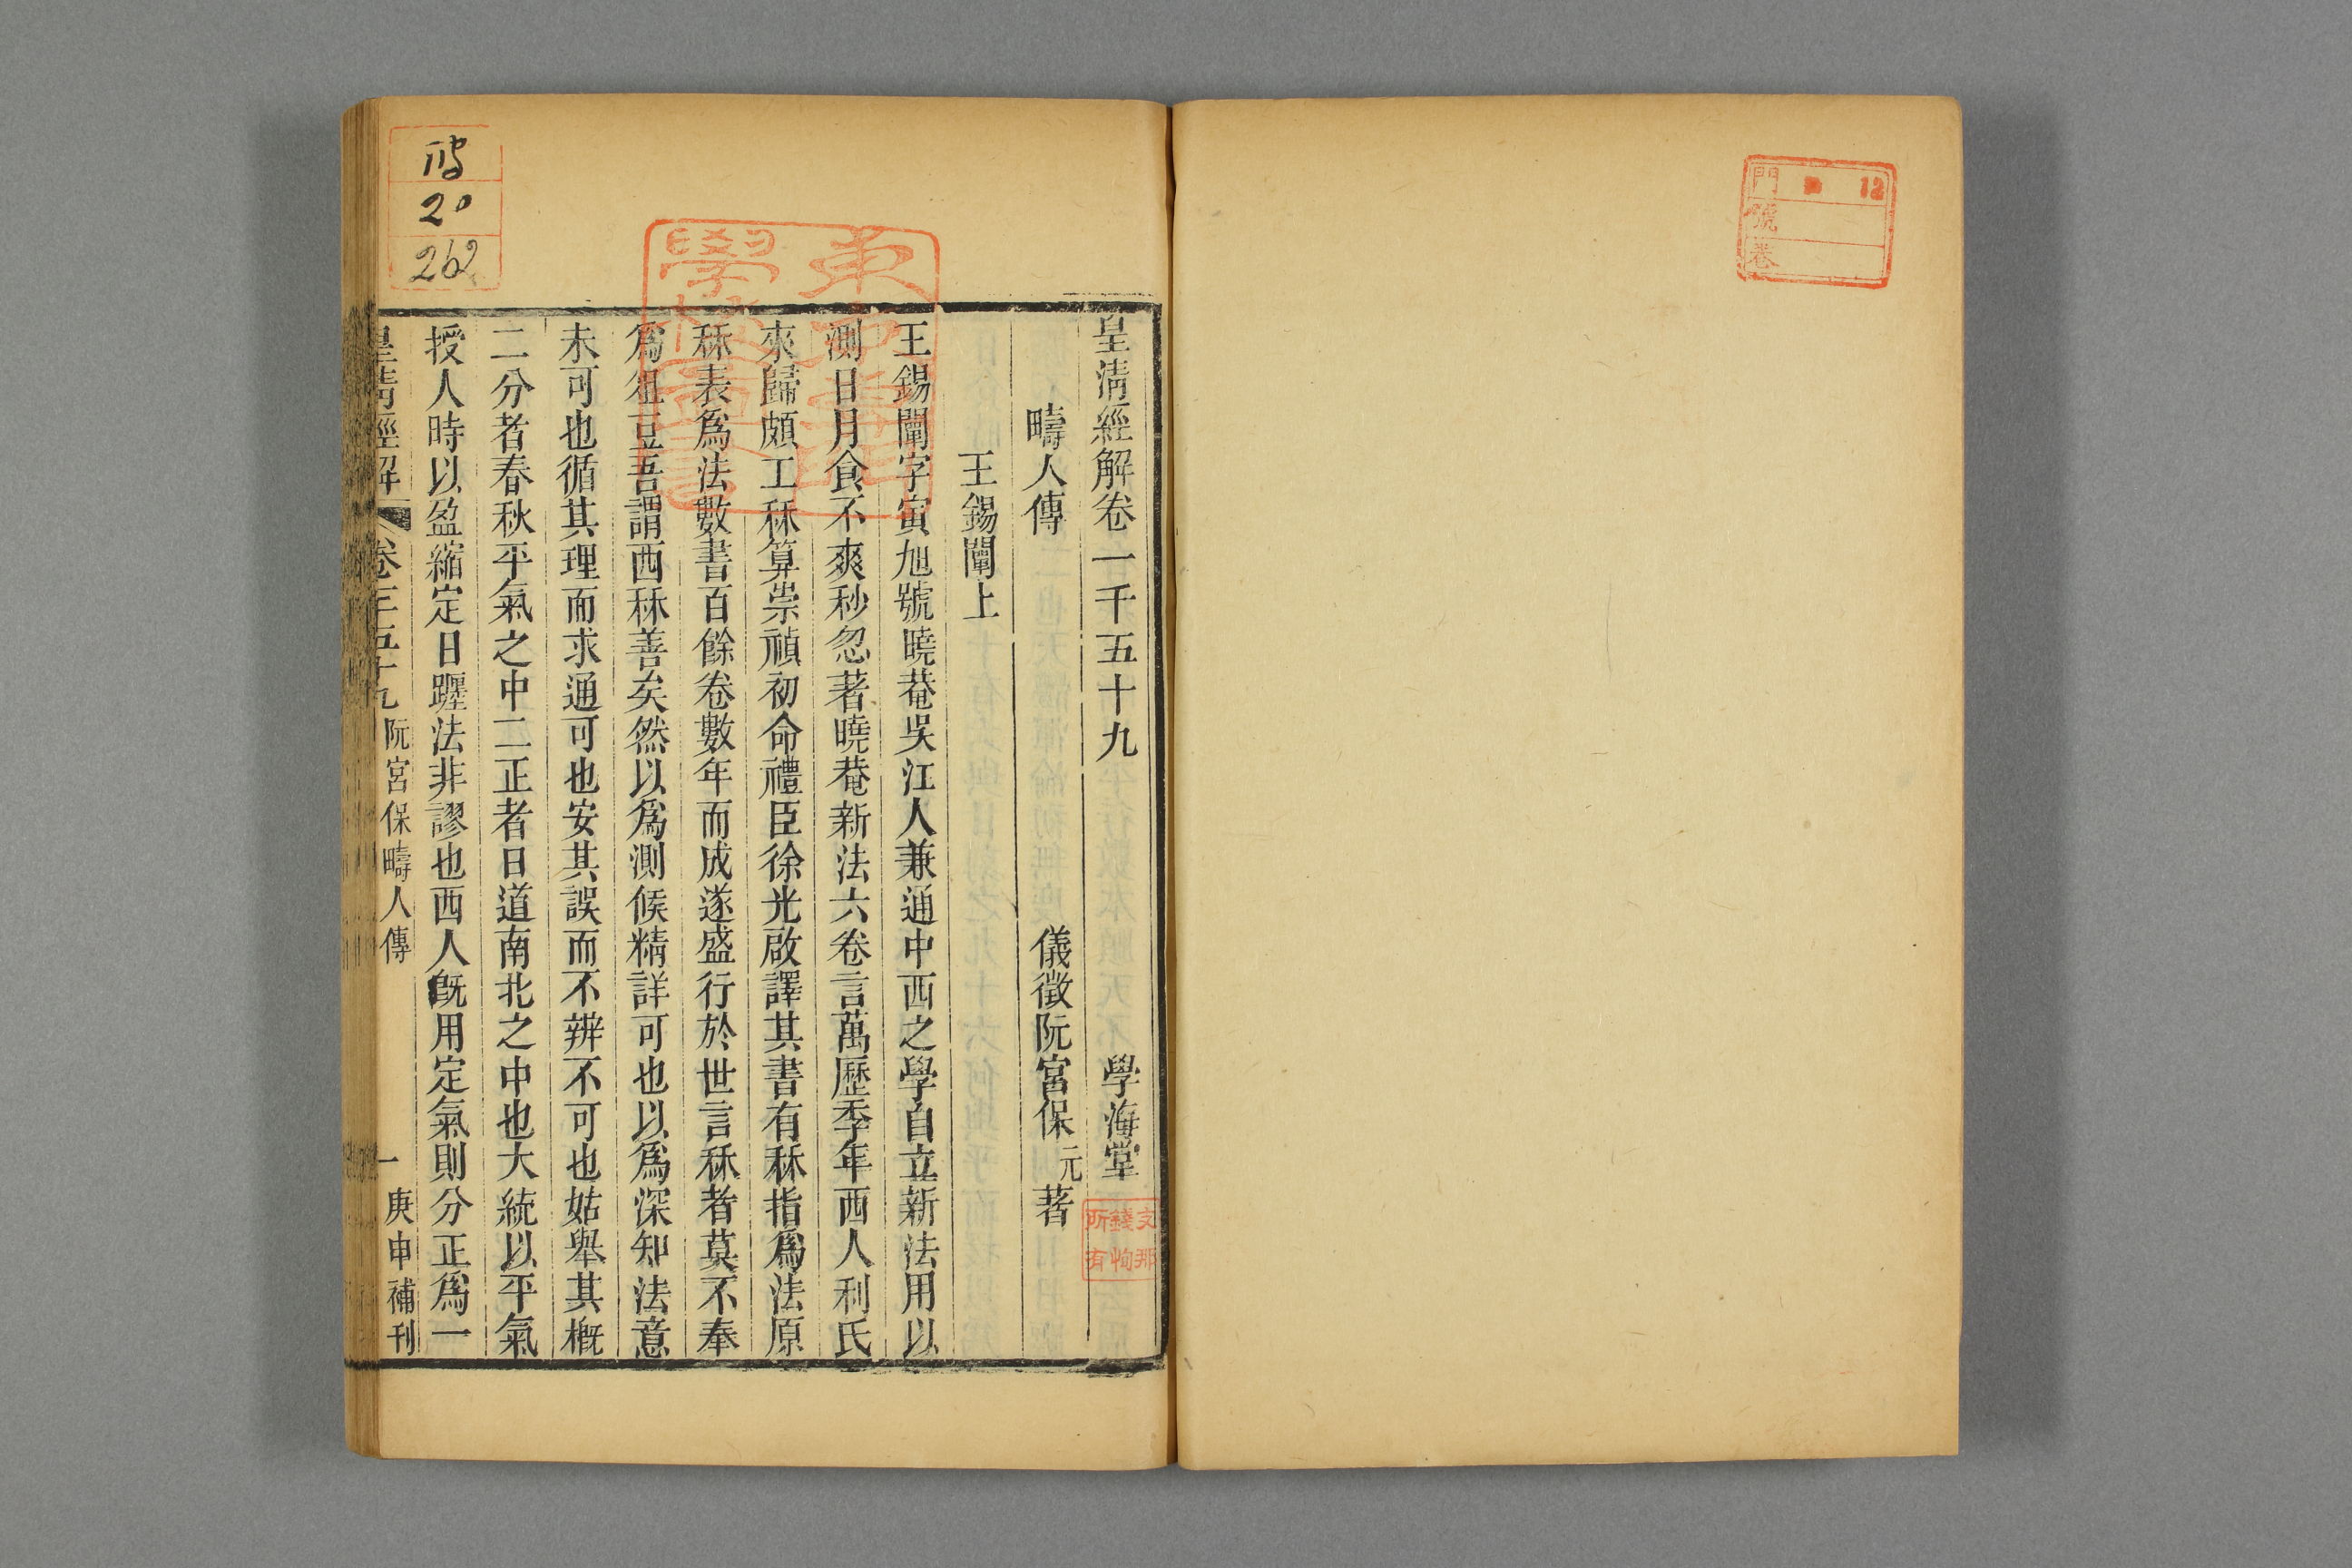 門 12
號
卷
皇清經解卷一千五十九 學海堂
疇人傳 儀徵阮宮保元著
王錫闡上
王錫闡字寅旭號曉菴吳江人兼通中西之學自立新法用以
測日月食不爽秒忽著曉菴新法六卷言萬歷季年西人利氏
來歸頗工秝算崇禎初命禮臣徐光啟譯其書有秝指爲法原
秝表爲法數書百餘卷數年而成遂盛行於世言秝者莫不奉
爲俎豆吾謂西秝善矣然以爲測候精詳可也以爲深知法意
未可也循其理而求通可也安其誤而不辨不可也姑舉其槪
二分者春秋平氣之中二正者日道南北之中也大統以平氣
授人時以盈縮定日躔法非謬也西人旣用定氣則分正爲一
皇清經解 卷千五十九 阮宮保疇人傳 一 庚申補刊
支那
錢恂
所有
20
262